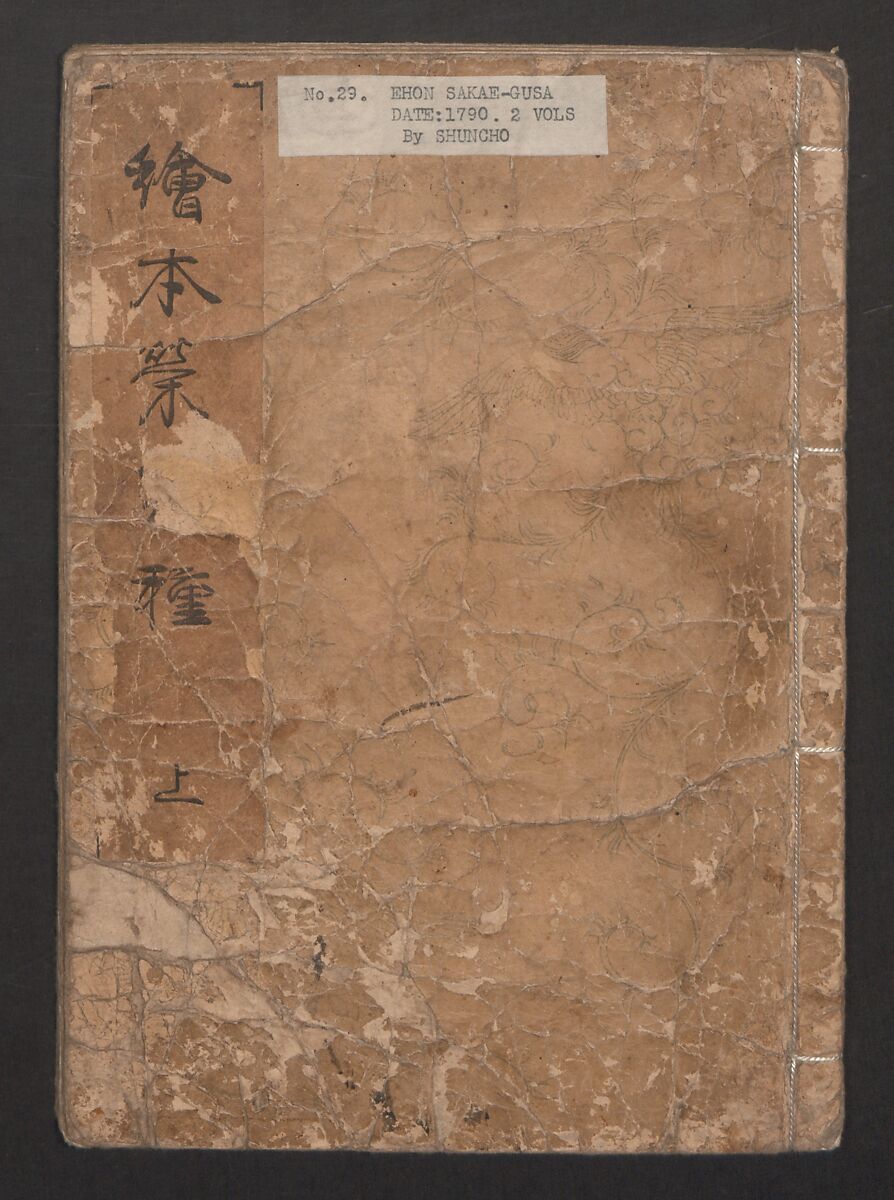 No.29. EHON SAKAE-GUSA
DATE:1790. 2 VOLS
By SHUNCHO
繪本榮種 上